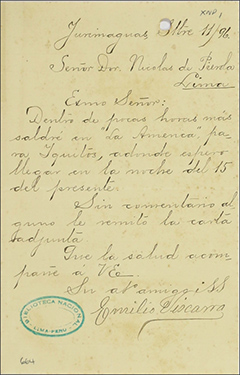 XNP 1
Yurimaguas, Stbre 11/96
Señor Dor. Nicolas de Piérola
Lima
Exmo Señor:
Dentro de pocas horas más
saldré en "La America" pa-
ra Iquitos, adonde espero
llegar en la noche del 15
del presente.
Sin comentario al
guno le remito la carta
adjunta
Que la salud acom
pañe a VE
Su afmo amigo i SS
Emilio Viscarra
BIBLIOTECA NACIONAL
LIMA-PERU